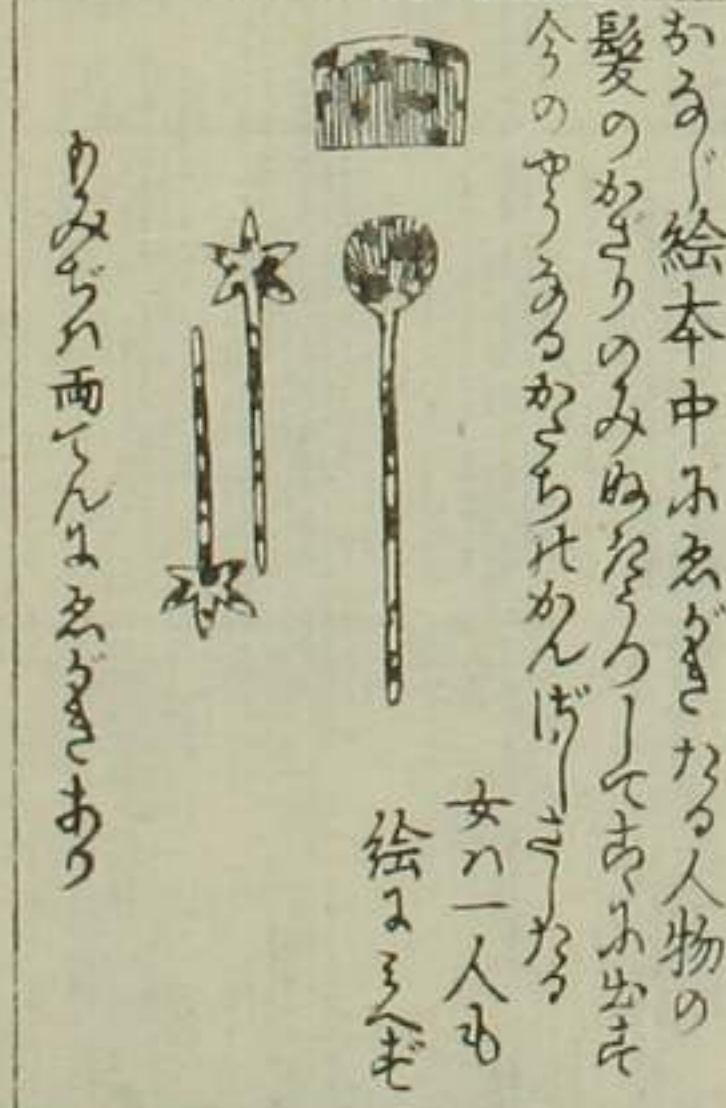 おなじ絵本中にゑがきたる人物の
髪のかざりのみぬきうつしてこゝに出す
今のやうなるかたちのかんざしさしたる
女ハ一人も
絵にみへず
もみぢハ両てんにゑがきあり